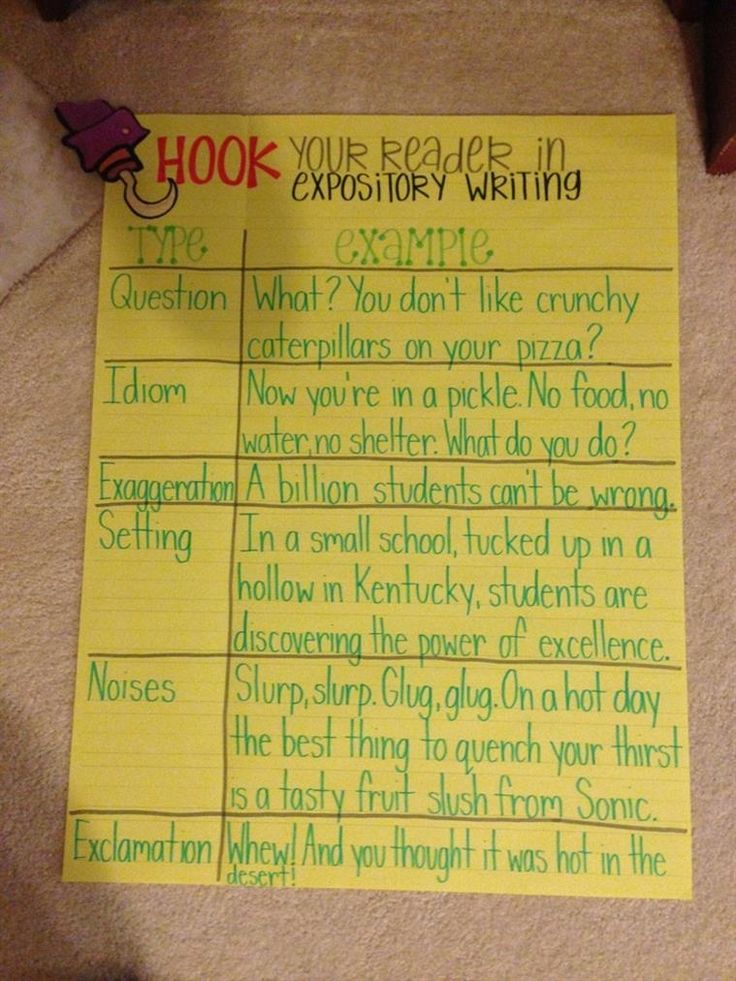 HOOK YOUR READER in
EXPOSITORY WRITING
TYPE EXAMPLE
Question What? You don't like crunchy
caterpillars on your pizza?
Idiom Now you're in a pickle. No food, no
water, no shelter. What do you do?
Exaggeration A billion students can't be wrong.
Setting In a small school, tucked up in a
hollow in Kentucky, students are
discovering the power of excellence.
Noises Slurp, slurp. Glug, glug. On a hot day
the best thing to quench your thirst
is a tasty fruit slush from Sonic.
Exclamation Whew! And you thought it was hot in the
desert!